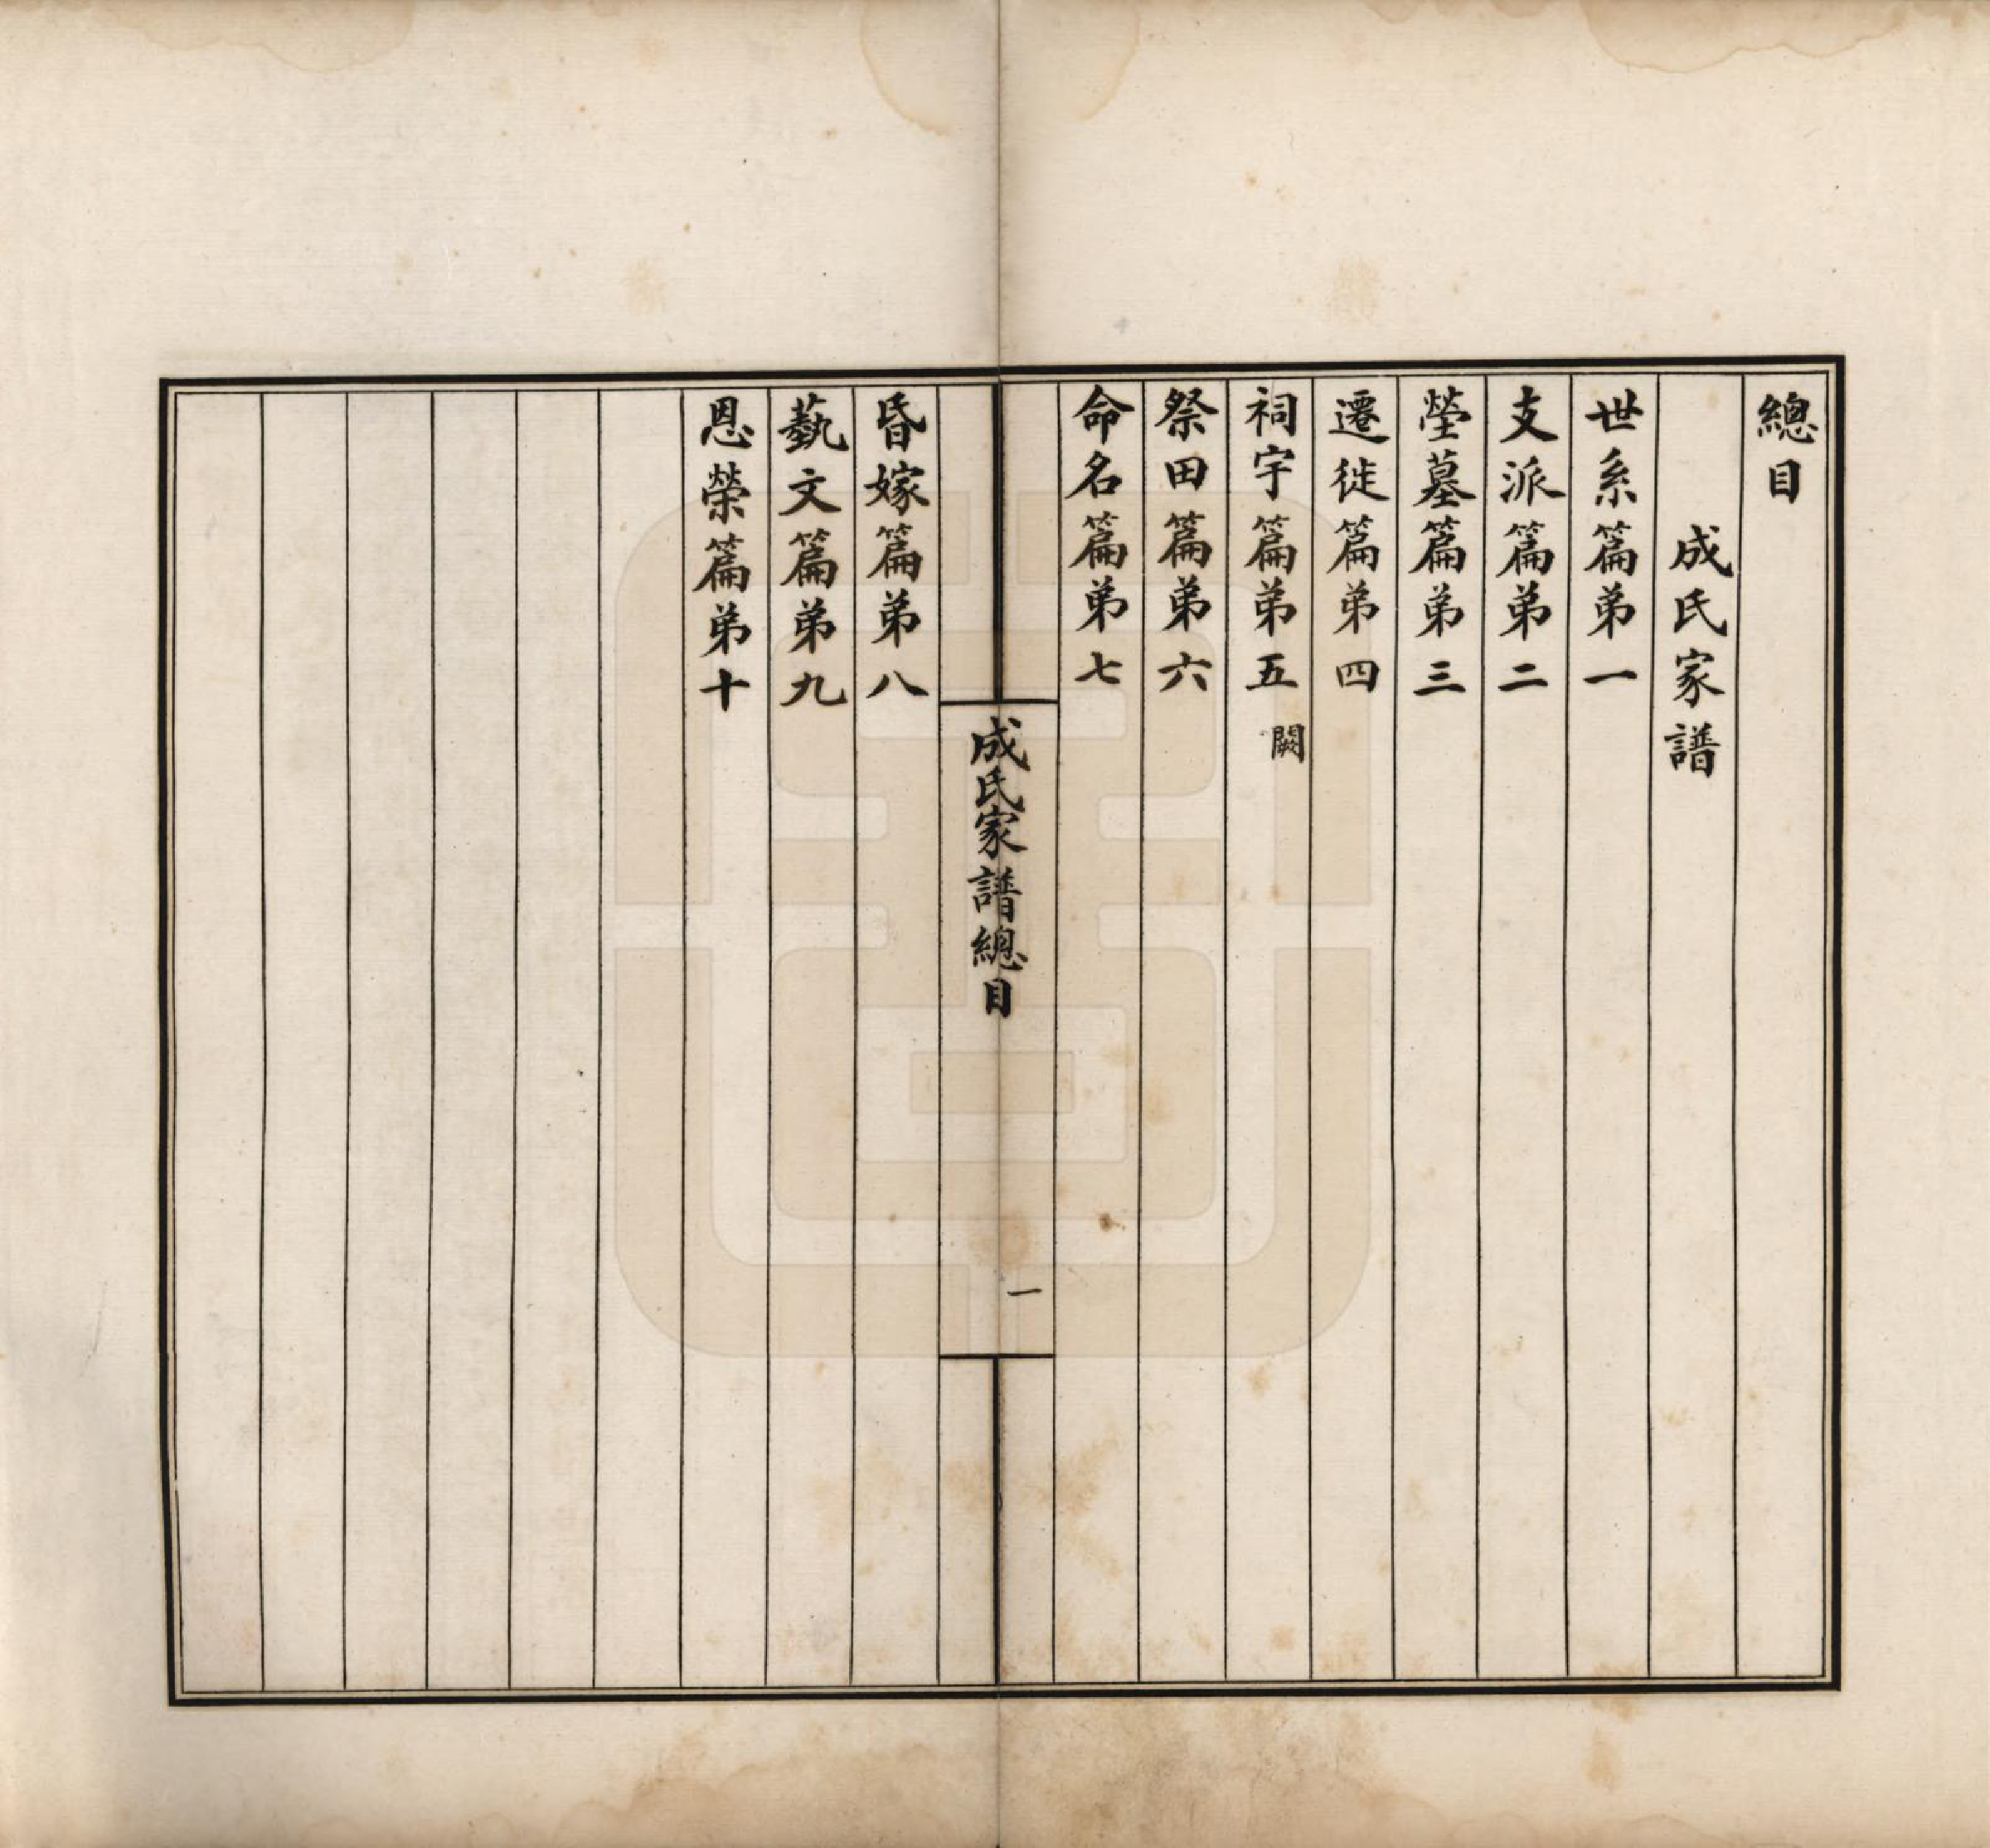 總目
成氏家譜
世系篇弟一
支派篇弟二
塋墓篇弟三
遷徙篇弟四
祠宇篇弟五 闕
祭田篇弟六
命名篇弟七
成氏家譜總目
一
昏嫁篇弟八
藝文篇弟九
恩榮篇弟十